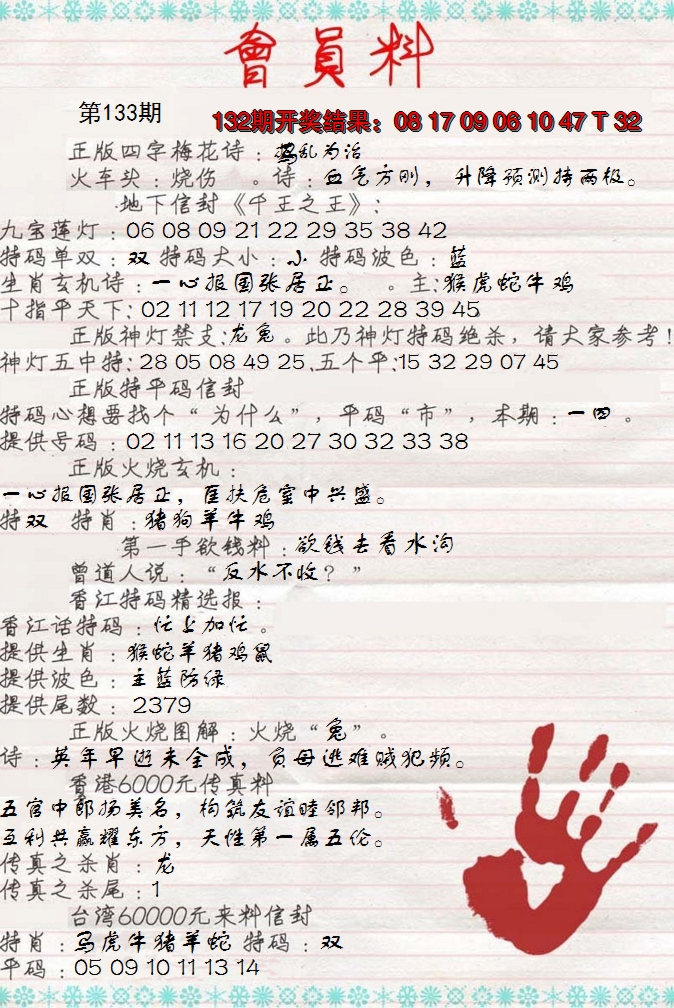 會員料
第133期
132期开奖结果：08 17 09 06 10 47 T 32
正版四字梅花诗：拨乱为治
火车头：烧伤 。诗：血气方刚，升降预测持两极。
地下信封《千王之王》：
九宝莲灯：06 08 09 21 22 29 35 38 42
特码单双：双 特码大小：小 特码波色：蓝
生肖玄机诗：一心报国张居正。 。主：猴虎蛇牛鸡
十指平天下：02 11 12 17 19 20 22 28 39 45
正版神灯禁支：龙兔。此乃神灯特码绝杀，请大家参考！
神灯五中特：28 05 08 49 25.五个平：15 32 29 07 45
正版特平码信封
特码心想要找个“为什么”，平码“市”，本期：一四。
提供号码：02 11 13 16 20 27 30 32 33 38
正版火烧玄机：
一心报国张居正，匡扶危室中兴盛。
特双 特肖：猪狗羊牛鸡
第一手欲钱料：欲钱去看水沟
曾道人说：“反水不收？”
香江特码精选报：
香江话特码：忙上加忙。
提供生肖：猴蛇羊猪鸡鼠
提供波色：主蓝防绿
提供尾数：2379
正版火烧图解：火烧“兔”。
诗：英年早逝未全成，负母逃难贼犯频。
香港6000元传真料
五官中郎扬美名，构筑友谊睦邻邦。
互利共赢耀东方，天性第一属五伦。
传真之杀肖：龙
传真之杀尾：1
台湾60000元来料信封
特肖：马虎牛猪羊蛇 特码：双
平码：05 09 10 11 13 14